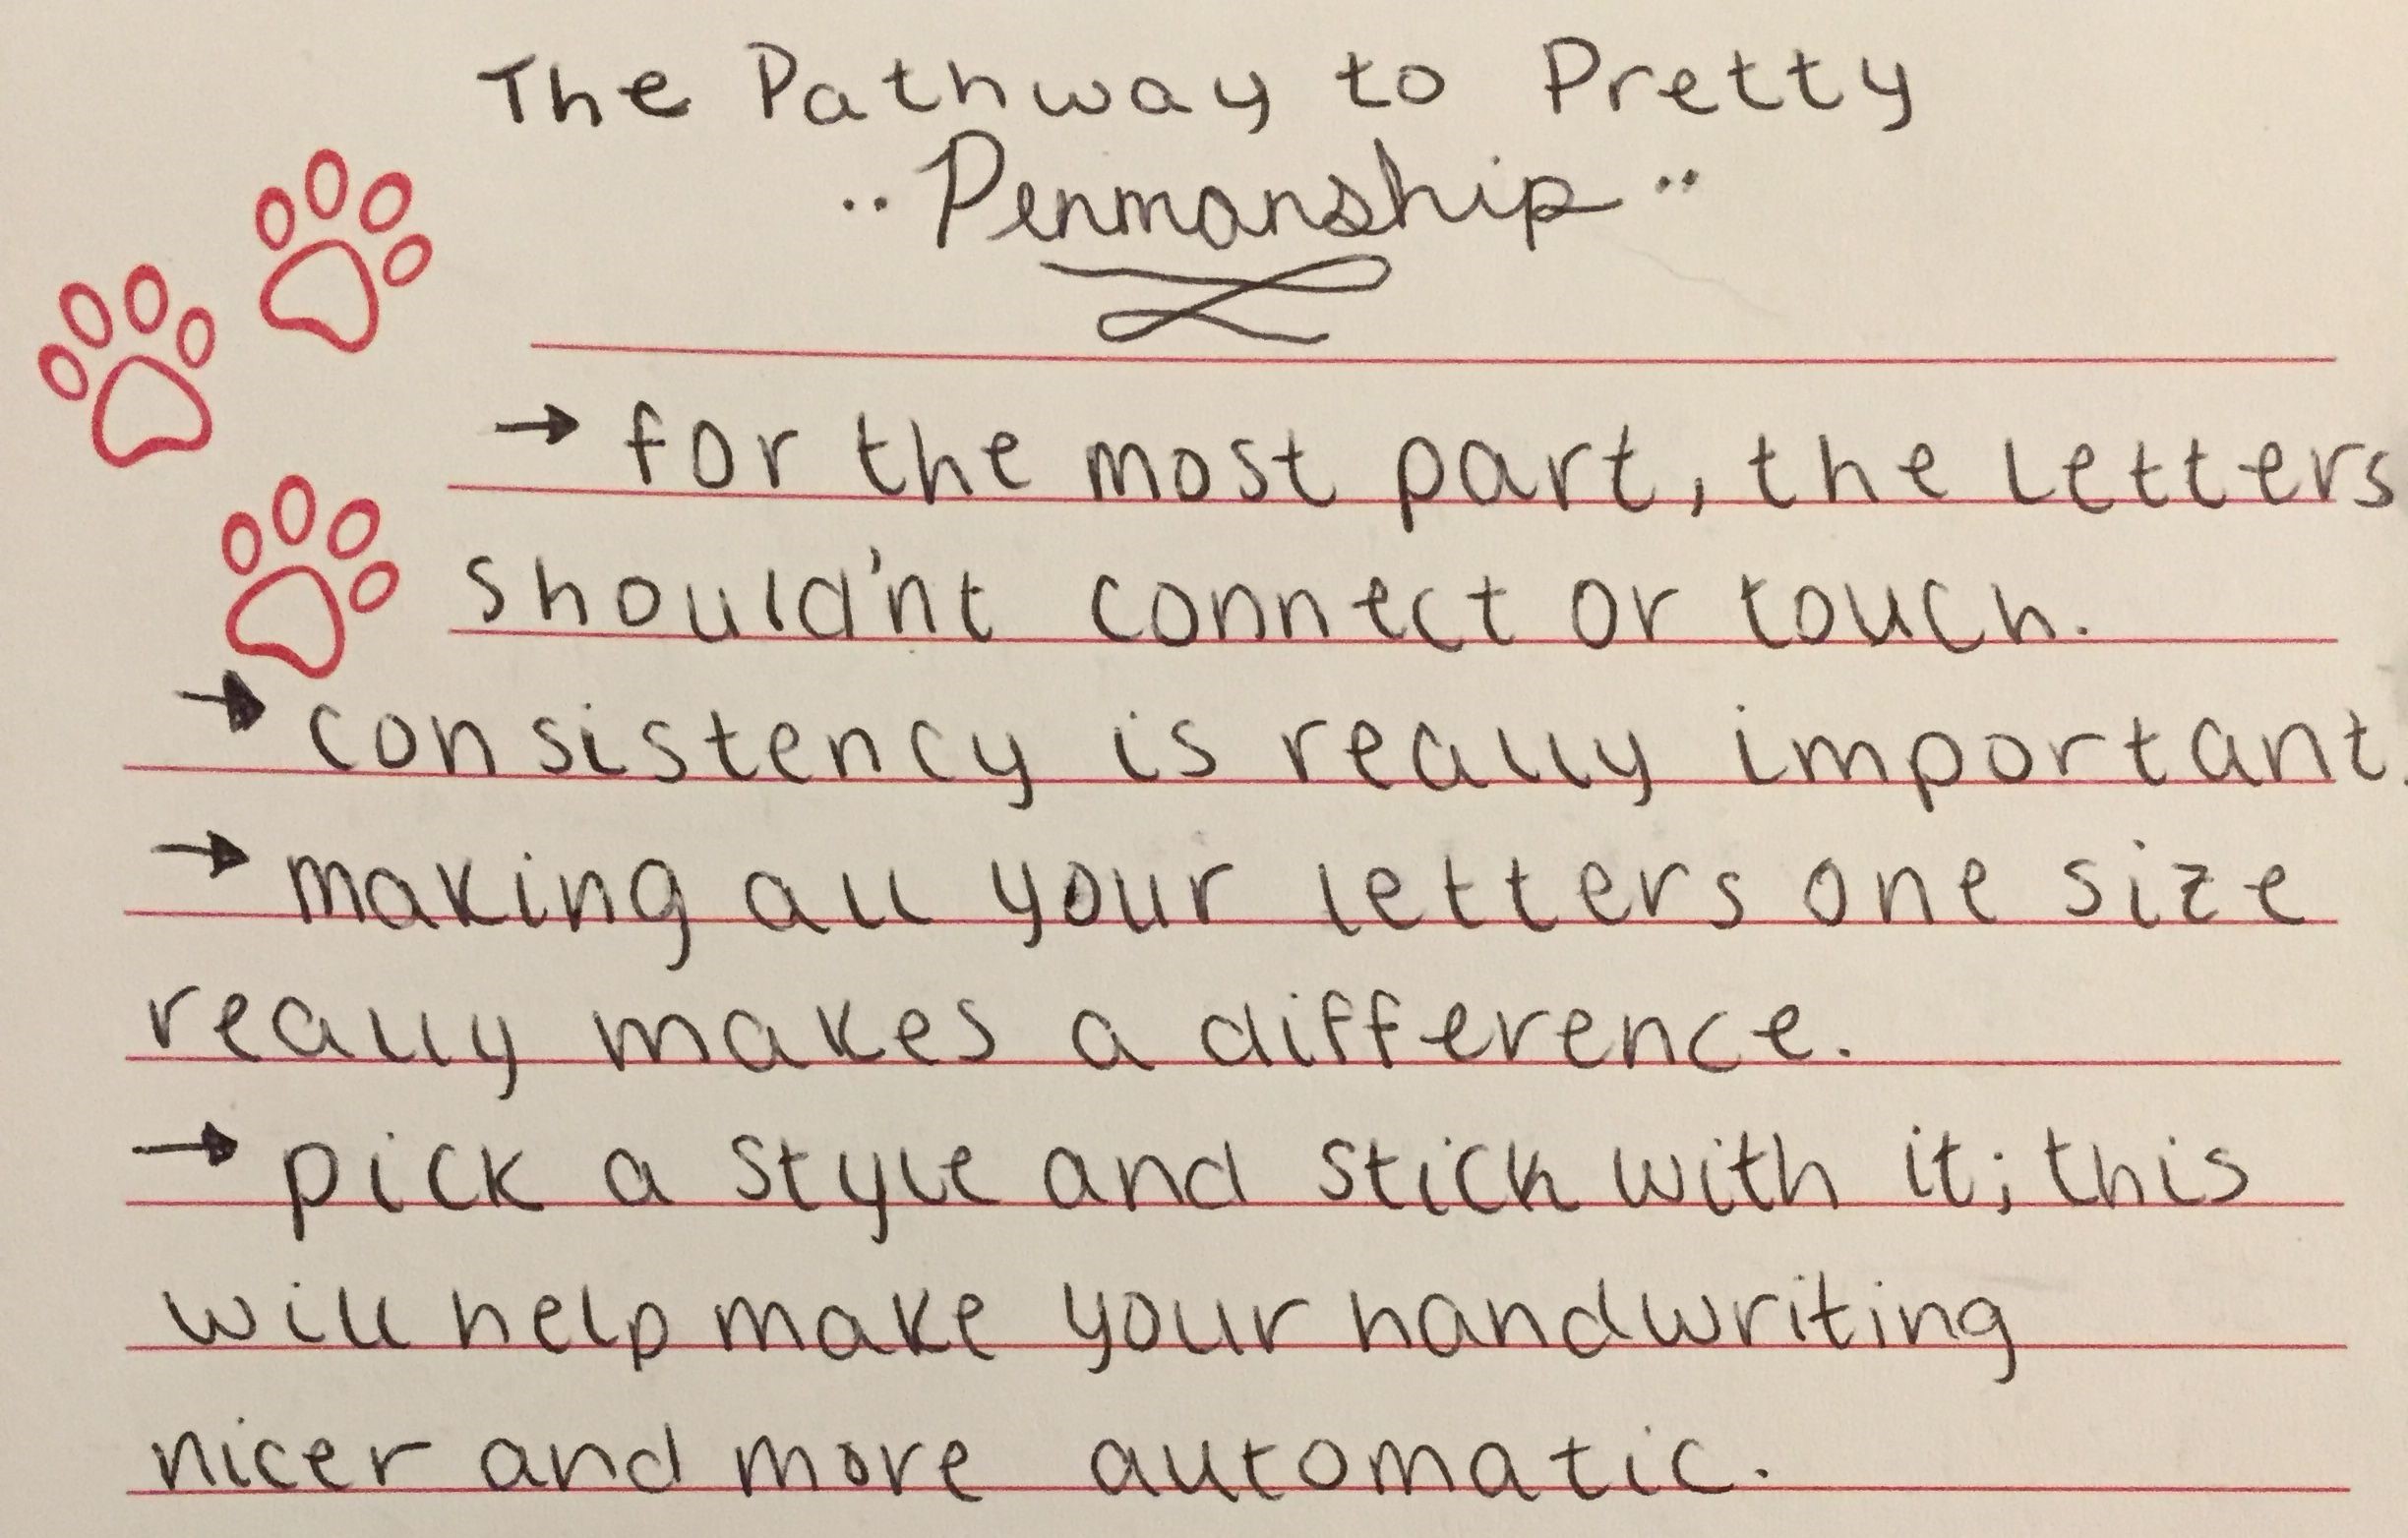 The Pathway to Pretty
·· Penmanship ··
→ for the most part, the letters
should'nt connect or touch.
→ consistency is really important.
→ making all your letters one size
really makes a difference.
→ pick a style and stick with it; this
will help make your handwriting
nicer and more automatic.